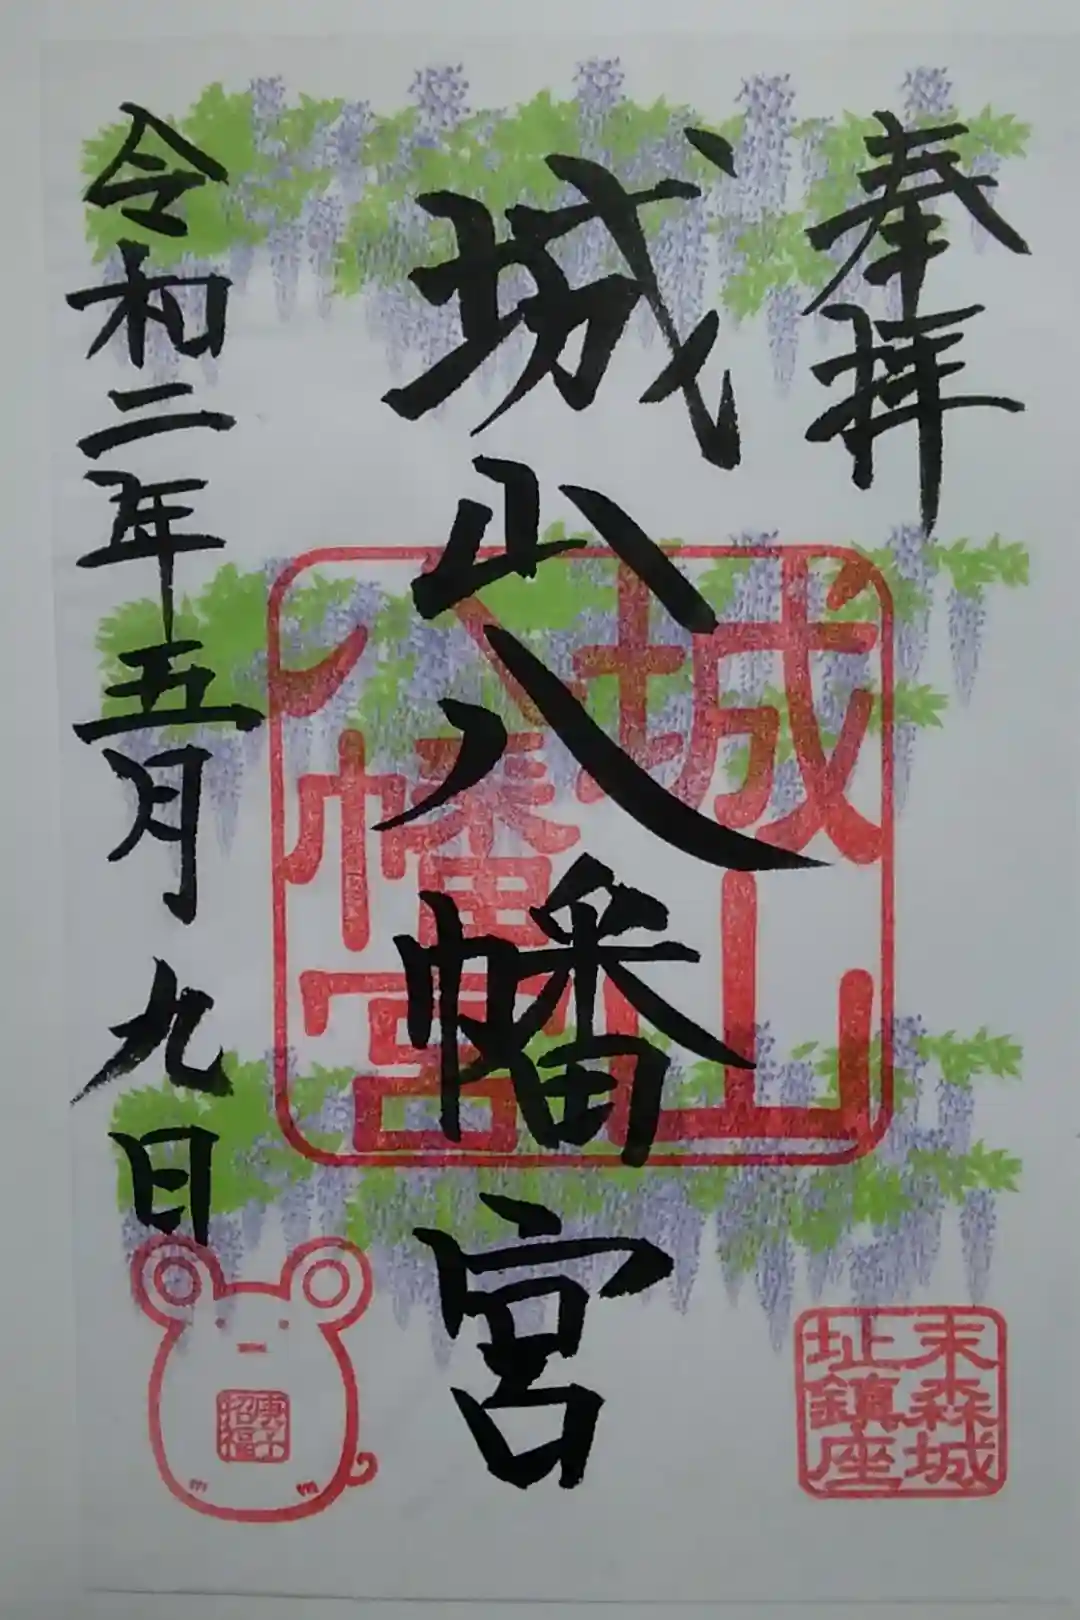 奉拝
城山八幡宮
令和二年五月九日
城山
八幡宮
末森城
址鎮座
庚子
招福